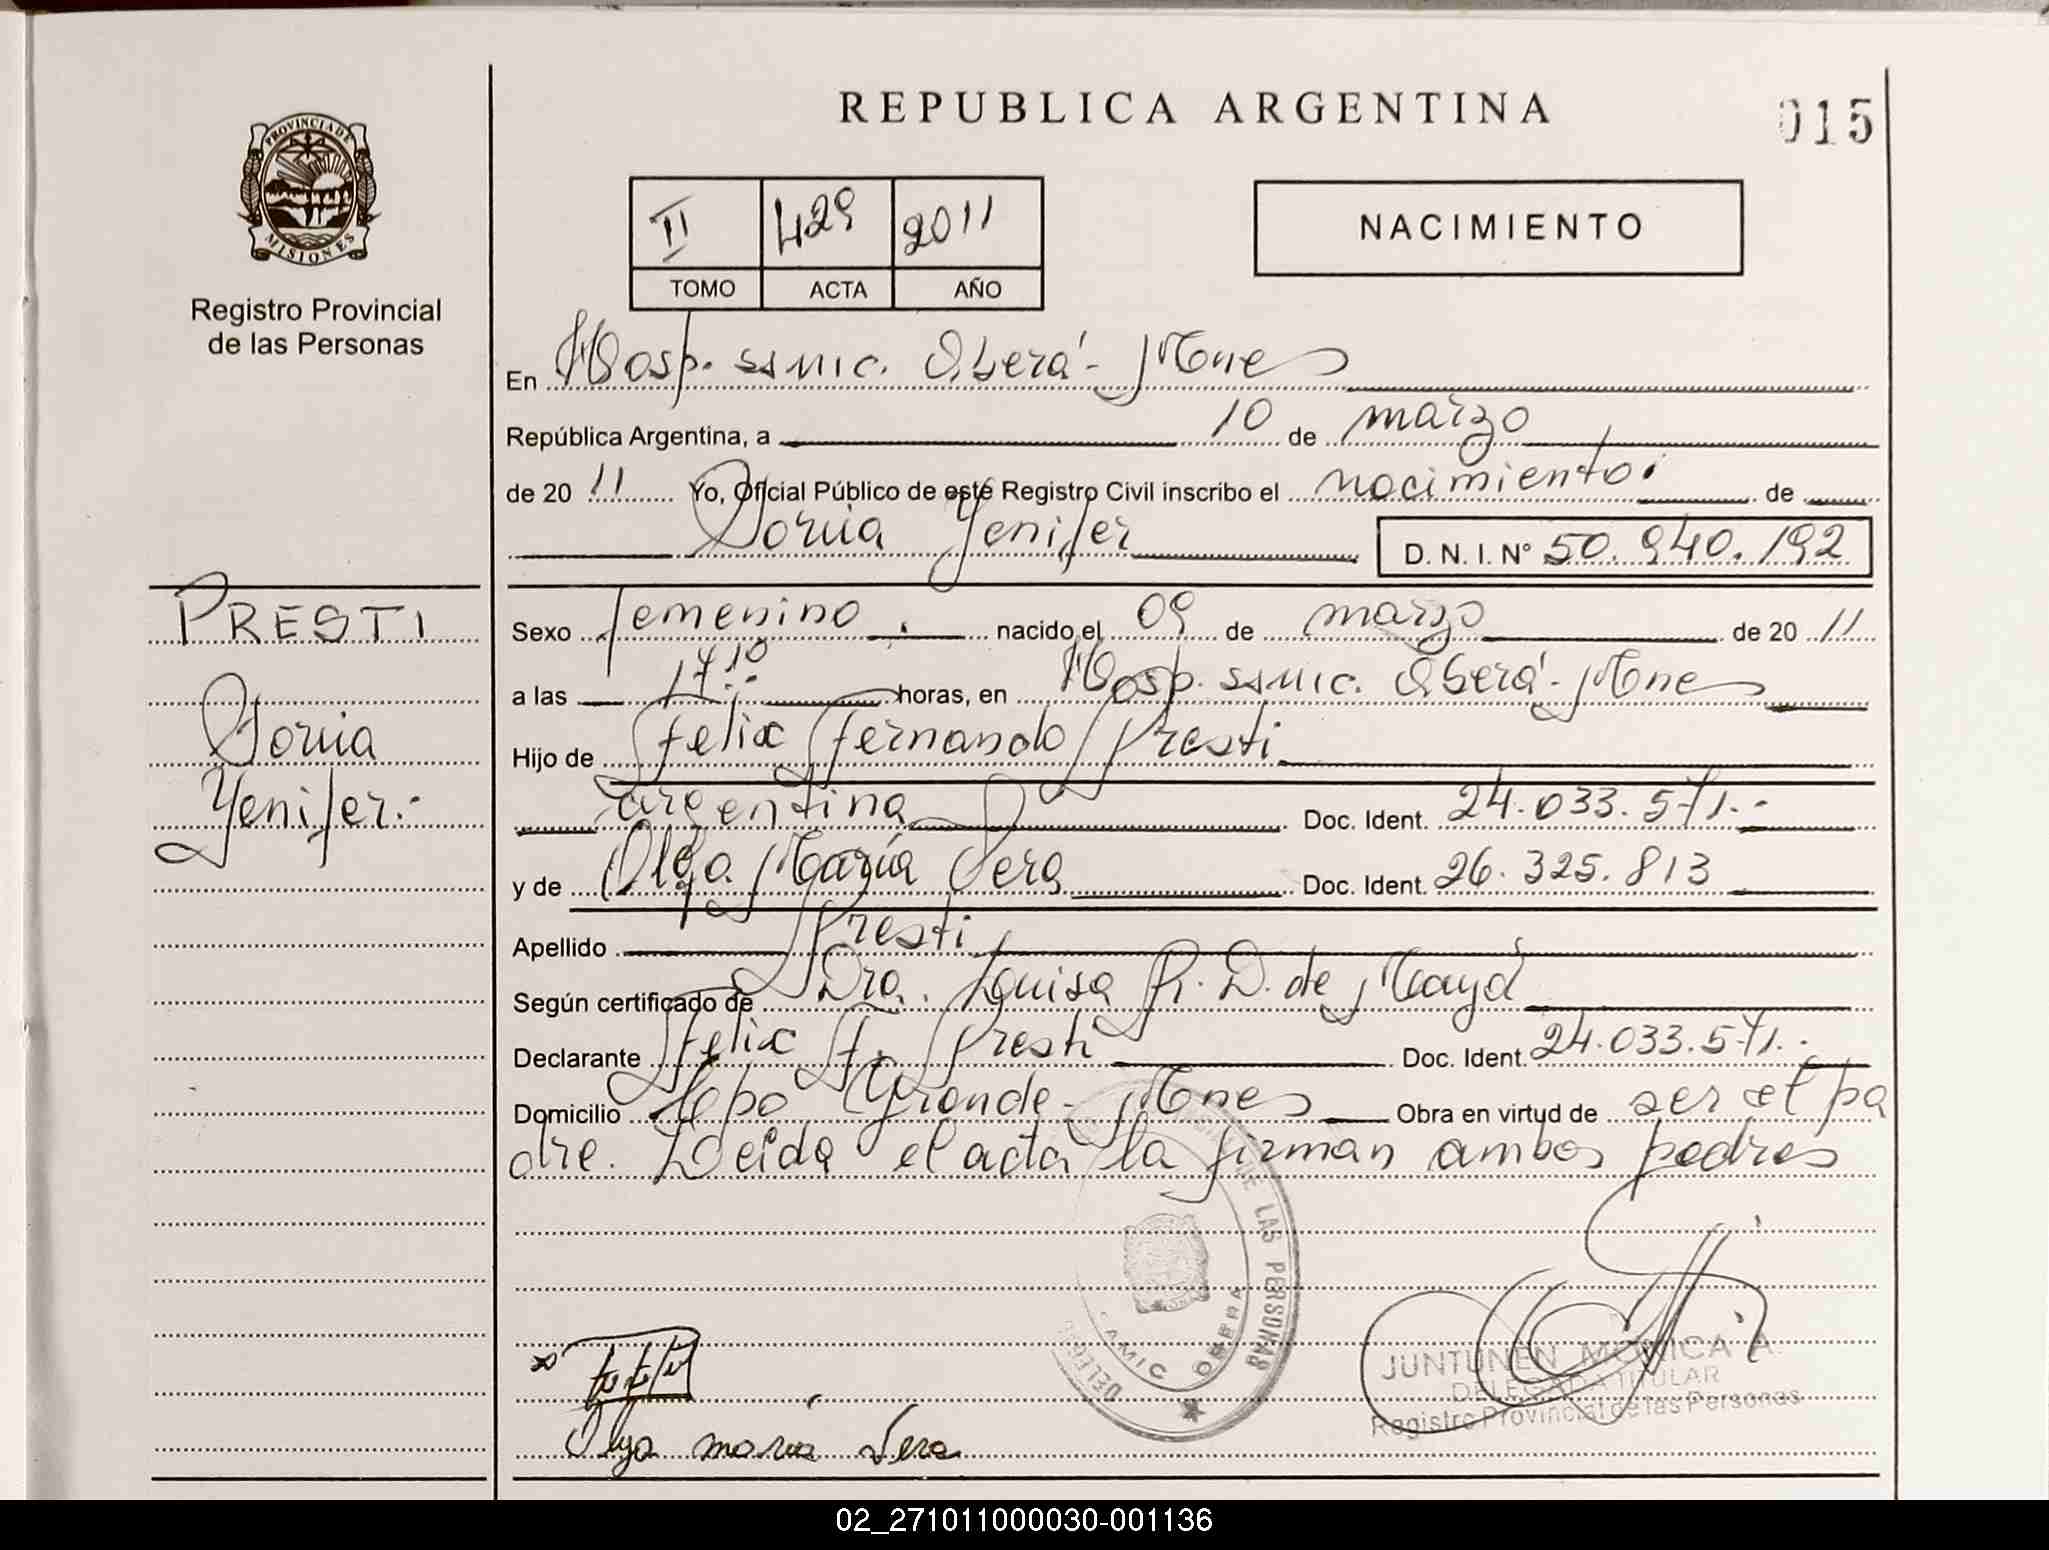 REPUBLICA ARGENTINA
015
PROVINCIA DE
MISIONES
Registro Provincial
de las Personas
II 429 2011
TOMO ACTA AÑO
NACIMIENTO
En Hosp. Oberá - Mnes
República Argentina, a 10 de marzo
de 20 11 Yo, Oficial Público de este Registro Civil inscribo el nacimiento de
Yenifer D. N. I. Nº 50.940.192
PRESTI
Yenifer.-
Sexo femenino. nacido el 09 de marzo de 20 11
a las 17:10 horas, en Hosp. Oberá - Mnes
Hijo de Felix Fernando Presti
argentina Doc. Ident. 24.033.571.-
y de Olga María Vera Doc. Ident. 26.325.813
Apellido Presti
Según certificado de Dra. Luisa R. D. de
Declarante Felix F. Presti Doc. Ident. 24.033.571.-
Domicilio Grande - Mnes Obra en virtud de ser el pa
dre. Leida el acta la firman ambos padres
DE LAS PERSONAS
OBERA
JUNTUNEN MONICA A.
DELEGADA TITULAR
Registro Provincial de las Personas
Olga maria Vera
02_271011000030-001136